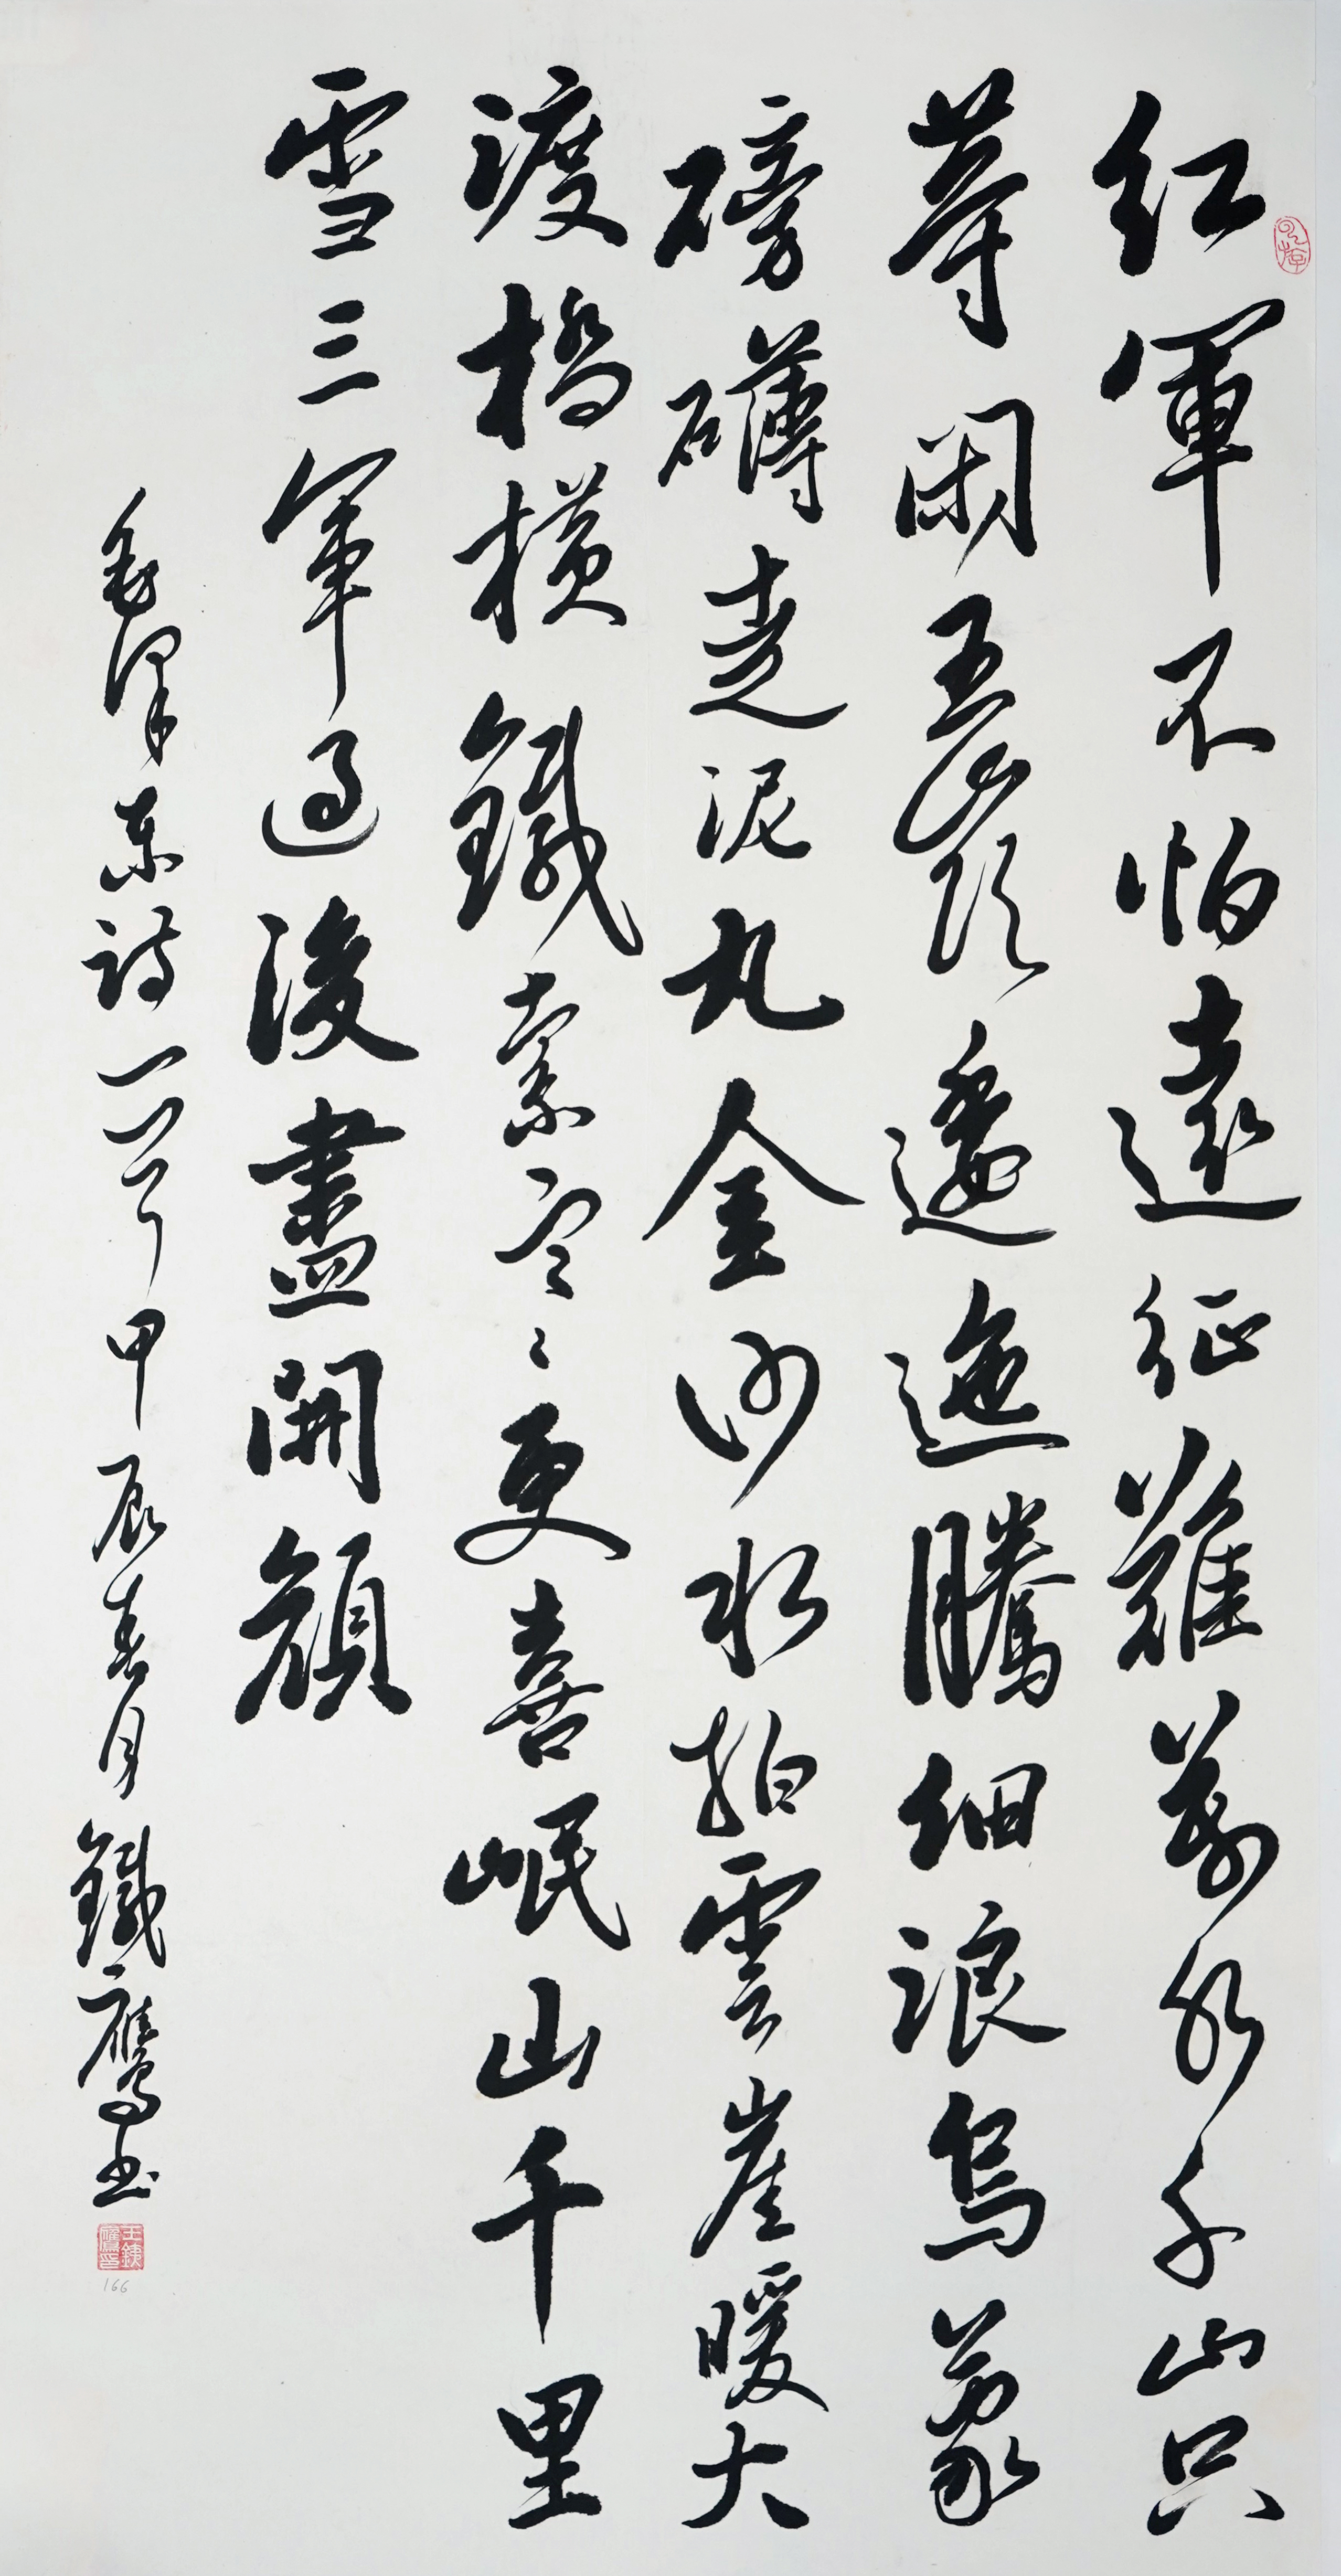 紅軍不怕遠征難萬水千山只
等閑五嶺逶迤騰細浪烏蒙
磅礴走泥丸金沙水拍雲崖暖大
渡橋橫鐵索寒更喜岷山千里
雪三軍過後盡開顏
毛澤東詩一首甲辰春月鐵鷹書
王銕鷹印
166